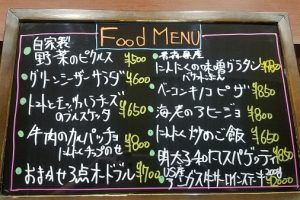 FOOD MENU
自家製
野菜のピクルス ¥500
グリーンシーザーサラダ ¥600
トマトとモッツァレラチーズ
のブルスケッタ ¥650
牛肉のカルパッチョ
にんにくチップのせ ¥800
おまかせ3点オードブル ¥700
青森県産
にんにくの味噌グラタン
バケット ¥780
ベーコンキノコピザ ¥850
海老のアヒージョ ¥800
にんにく炒めご飯 ¥650
明太子和風スパゲッティ ¥850
US産
アンガス牛サーロインステーキ 200g